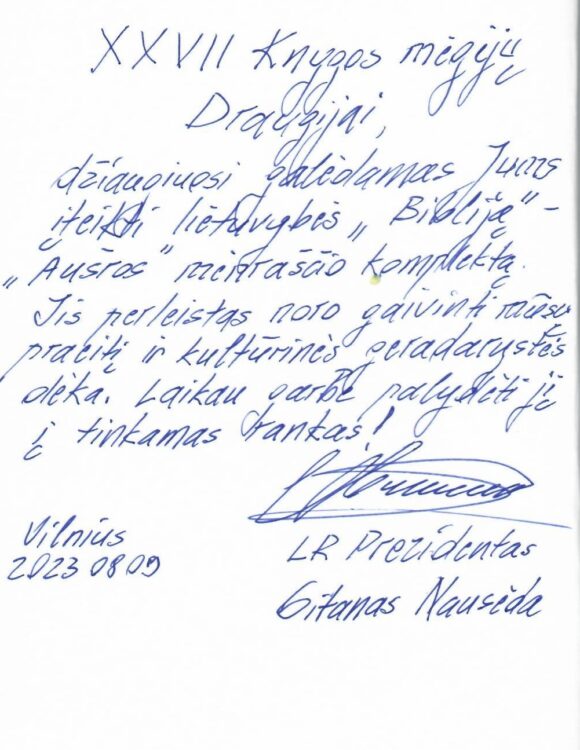 XXVII Knygos mėgėjų
Draugijai,
džiaugiuosi galėdamas Jums
įteikti lietuvybės „Bibliją" –
„Aušros" mėnraščio komplektą.
Jis perleistas noro gaivinti mūsų
praeitį ir kultūrinės geradarystės
dėka. Laikau garbe palydėti jį
į tinkamas rankas!
Vilnius
2023 08 09
LR Prezidentas
Gitanas Nausėda